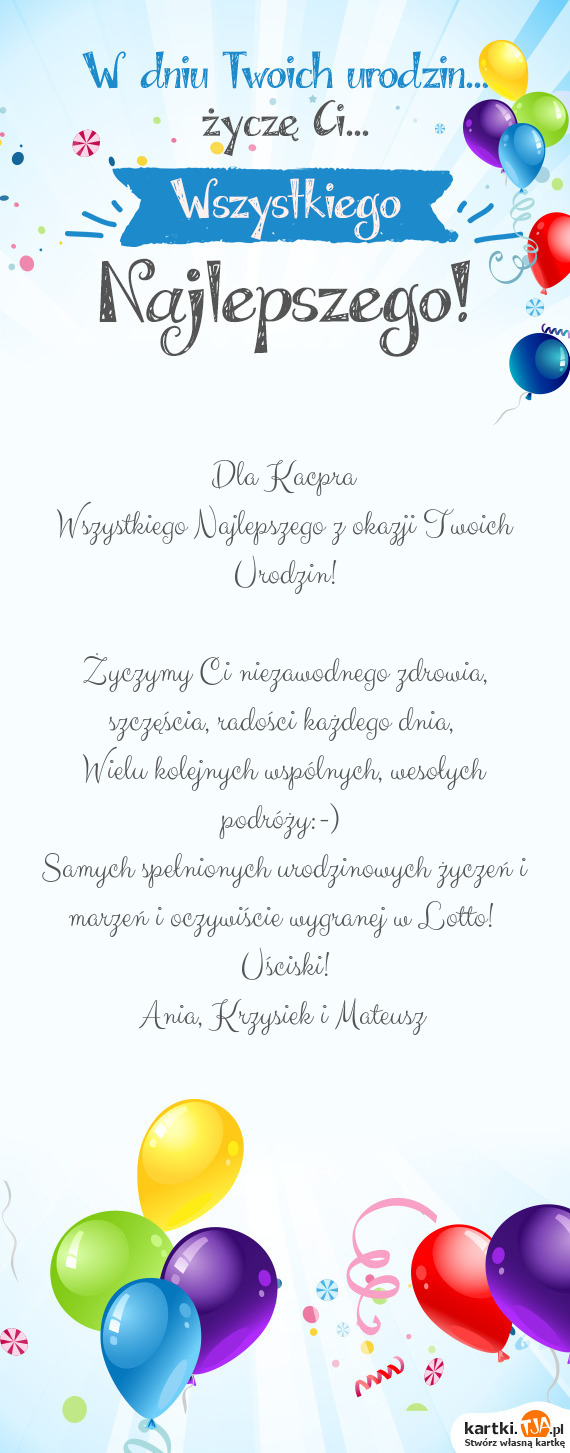 W dniu Twoich urodzin...
życzę Ci...
Wszystkiego
Najlepszego!
Dla Kacpra
Wszystkiego Najlepszego z okazji Twoich
Urodzin!
Życzymy Ci niezawodnego zdrowia,
szczęścia, radości każdego dnia,
Wielu kolejnych wspólnych, wesołych
podróży:-)
Samych spełnionych urodzinowych życzeń i
marzeń i oczywiście wygranej w Lotto!
Uściski!
Ania, Krzysiek i Mateusz
kartki.TJA.pl
Stwórz własną kartkę